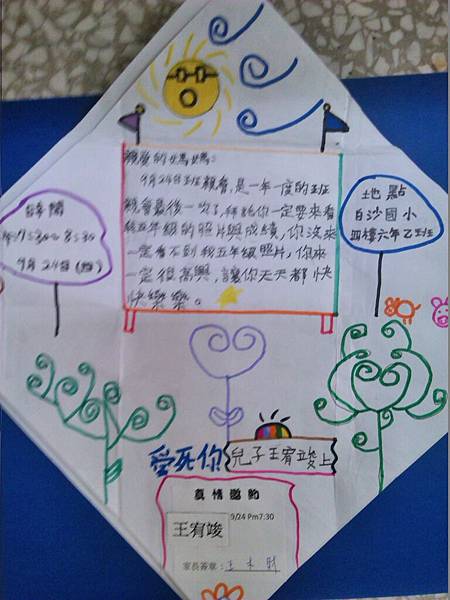 親愛的媽媽:
9月24日班親會,是一年一度的班
親會最後一次了,拜託你一定要來看
我五年級的照片與成績,你沒來
一定看不到我五年級照片,你來
一定很高興,讓你天天都快
快樂樂。
時間
7:30~8:30
9月24日(四)
地點
白沙國小
四樓六年乙班
愛死你
兒子王宥竣上
真情邀約
9/24 Pm7:30
王宥竣
家長簽章: